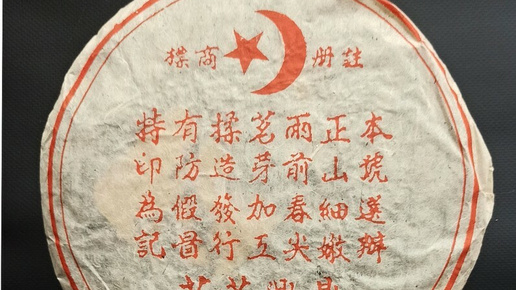 註册商標
本號送辦
正山細嫩
雨前春尖
茗芽加工
揉造發行
有防假冒
特印為記